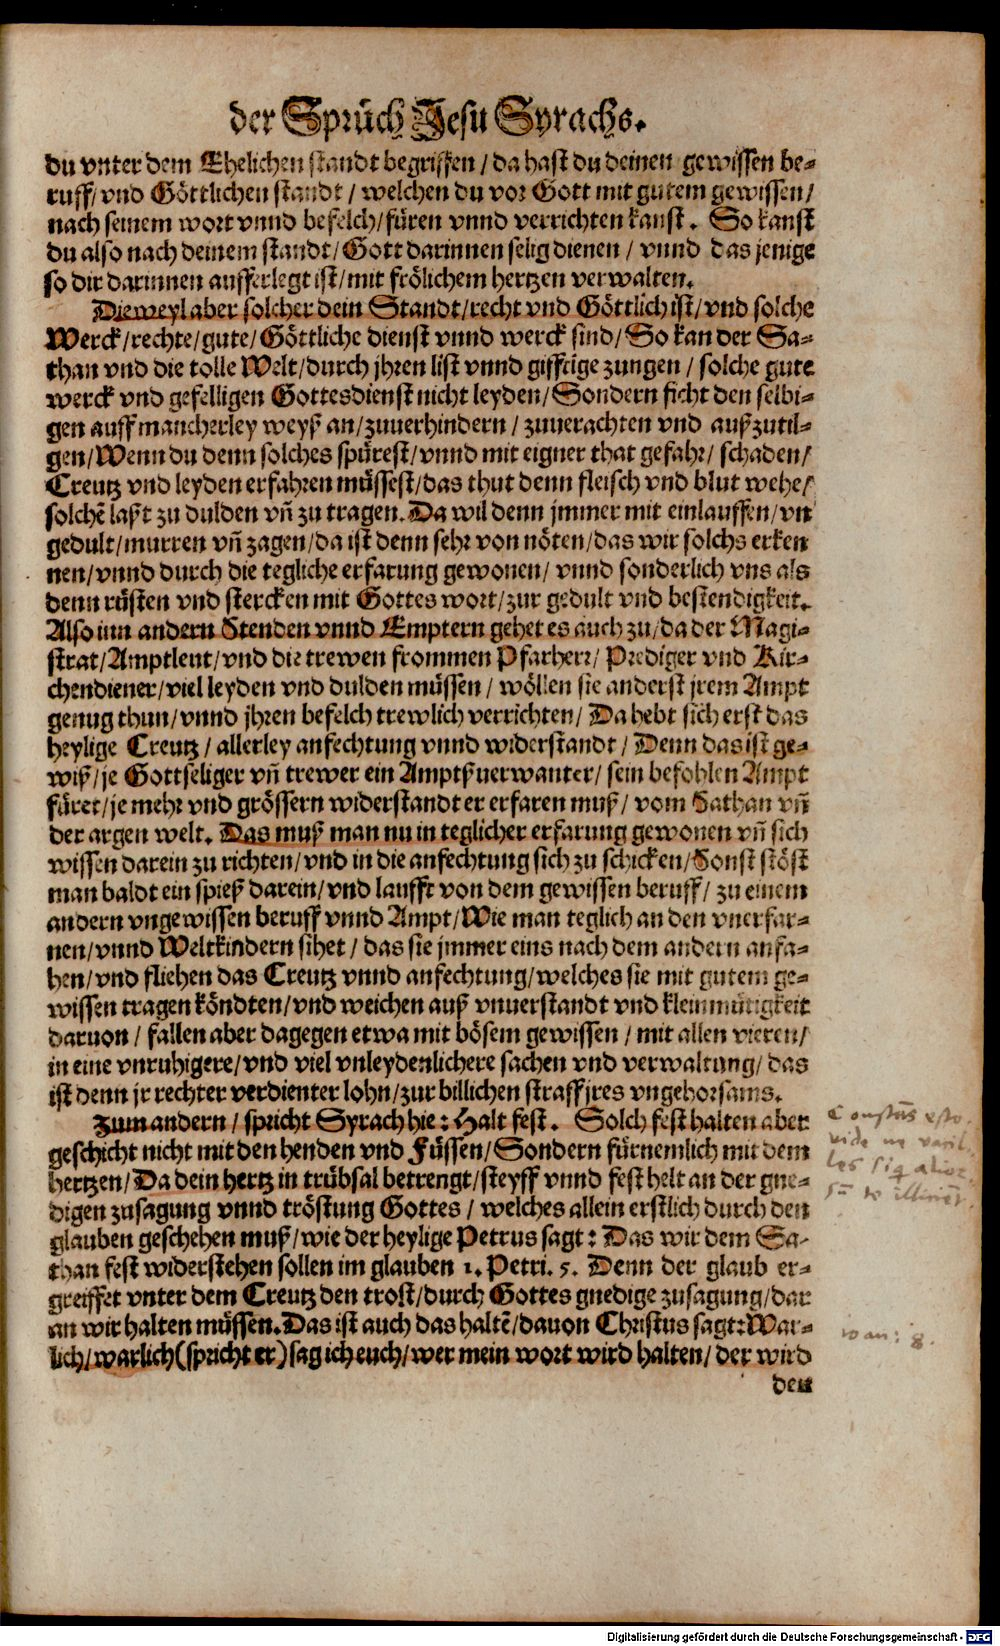 der Sprüch Jesu Syrachs.
du vnter dem Ehelichen standt begriffen / da hast du deinen gewissen be-
ruff/ vnd Göttlichen standt / welchen du vor Gott mit gutem gewissen/
nach seinem wort vnnd befelch/ füren vnnd verrichten kanst. So kanst
du also nach deinem standt/ Gott darinnen selig dienen / vnnd das jenige
so dir darinnen aufferlegt ist/ mit frölichem hertzen verwalten.
Dieweyl aber solcher dein Standt/ recht vnd Göttlich ist/ vnd solche
Werck/ rechte/ gute/ Göttliche dienst vnnd werck sind/ So kan der Sa-
than vnd die tolle Welt/ durch jhren list vnnd gifftige zungen / solche gute
werck vnd gefelligen Gottesdienst nicht leyden/ Sondern ficht den selbi-
gen auff mancherley weyß an/ zuuerhindern / zuuerachten vnd außzutil-
gen/ Wenn du denn solches spürest/ vnnd mit eigner that gefahr/ schaden/
Creutz vnd leyden erfahren müssest/ das thut denn fleisch vnd blut wehe/
solchē laßt zu dulden vñ zu tragen. Da wil denn jmmer mit einlauffen/ vn
gedult/ murren vñ zagen/ da ist denn sehr von nöten/ das wir solchs erken
nen/ vnnd durch die tegliche erfarung gewonen/ vnnd sonderlich vns als
denn rüsten vnd stercken mit Gottes wort/ zur gedult vnd bestendigkeit.
Also inn andern Stenden vnnd Emptern gehet es auch zu/ da der Magi-
strat/ Amptleut/ vnd die trewen frommen Pfarherr/ Prediger vnd Kir-
chendiener/ viel leyden vnd dulden müssen / wöllen sie anderst jrem Ampt
genug thun/ vnnd jhren befelch trewlich verrichten/ Da hebt sich erst das
heylige Creutz / allerley anfechtung vnnd widerstandt / Denn das ist ge-
wiß/ je Gottseliger vñ trewer ein Amptßuerwanter/ sein befohlen Ampt
füret/ je mehr vnd grössern widerstandt er erfaren muß/ vom Sathan vñ
der argen welt. Das muß man nu in teglicher erfarung gewonen vñ sich
wissen darein zu richten/ vnd in die anfechtung sich zu schicken/ Sonst stöst
man baldt ein spieß darein/ vnd laufft von dem gewissen beruff/ zu einem
andern vngewissen beruff vnnd Ampt/ Wie man teglich an den vnerfar-
nen/ vnnd Weltkindern sihet / das sie jmmer eins nach dem andern anfa-
hen/ vnd fliehen das Creutz vnnd anfechtung/ welches sie mit gutem ge-
wissen tragen köndten/ vnd weichen auß vnuerstandt vnd kleinmütigkeit
daruon / fallen aber dagegen etwa mit bösem gewissen / mit allen vieren/
in eine vnruhigere/ vnd viel vnleydenlichere sachen vnd verwaltung/ das
ist denn jr rechter verdienter lohn/ zur billichen straff jres vngehorsams.
Zum andern / spricht Syrach hie : Halt fest. Solch fest halten aber
geschicht nicht mit den henden vnd Füssen/ Sondern fürnemlich mit dem
hertzen/ Da dein hertz in trübsal betrengt/ steyff vnnd fest helt an der gne-
digen zusagung vnnd tröstung Gottes / welches allein erstlich durch den
glauben geschehen muß/ wie der heylige Petrus sagt : Das wir dem Sa-
than fest widerstehen sollen im glauben 1. Petri. 5. Denn der glaub er-
greiffet vnter dem Creutz den trost/ durch Gottes gnedige zusagung/ dar
an wir halten müssen. Das ist auch das haltē/ dauon Christus sagt: War-
lich/ warlich (spricht er) sag ich euch/ wer mein wort wird halten/ der wird
den
Constās esto
vide ne vacil-
les
Ioan: 8.
Digitalisierung gefördert durch die Deutsche Forschungsgemeinschaft - DFG